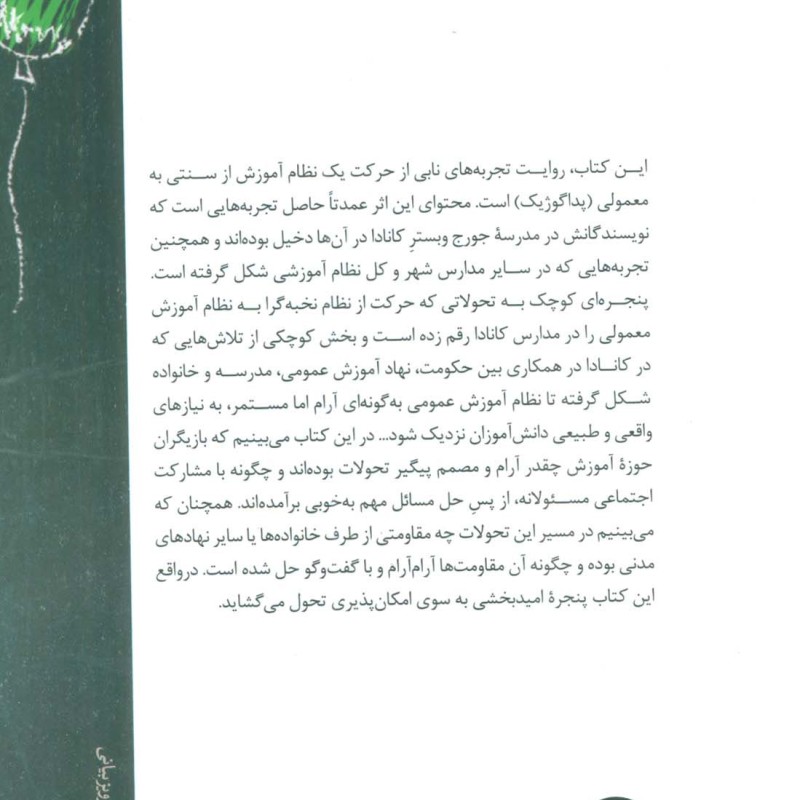 این کتاب، روایت تجربه‌های نابی از حرکت یک نظام آموزش از سنتی به
معمولی (پداگوژیک) است. محتوای این اثر عمدتاً حاصل تجربه‌هایی است که
نویسندگانش در مدرسهٔ جورج وبسترِ کانادا در آن‌ها دخیل بوده‌اند و همچنین
تجربه‌هایی که در سایر مدارس شهر و کل نظام آموزشی شکل گرفته است.
پنجره‌ای کوچک به تحولاتی که حرکت از نظام نخبه‌گرا به نظام آموزش
معمولی را در مدارس کانادا رقم زده است و بخش کوچکی از تلاش‌هایی که
در کانادا در همکاری بین حکومت، نهاد آموزش عمومی، مدرسه و خانواده
شکل گرفته تا نظام آموزش عمومی به‌گونه‌ای آرام اما مستمر، به نیازهای
واقعی و طبیعی دانش‌آموزان نزدیک شود... در این کتاب می‌بینیم که بازیگران
حوزهٔ آموزش چقدر آرام و مصمم پیگیر تحولات بوده‌اند و چگونه با مشارکت
اجتماعی مسئولانه، از پسِ حل مسائل مهم به‌خوبی برآمده‌اند. همچنان که
می‌بینیم در مسیر این تحولات چه مقاومتی از طرف خانواده‌ها یا سایر نهادهای
مدنی بوده و چگونه آن مقاومت‌ها آرام‌آرام و با گفت‌وگو حل شده است. درواقع
این کتاب پنجرهٔ امیدبخشی به سوی امکان‌پذیری تحول می‌گشاید.